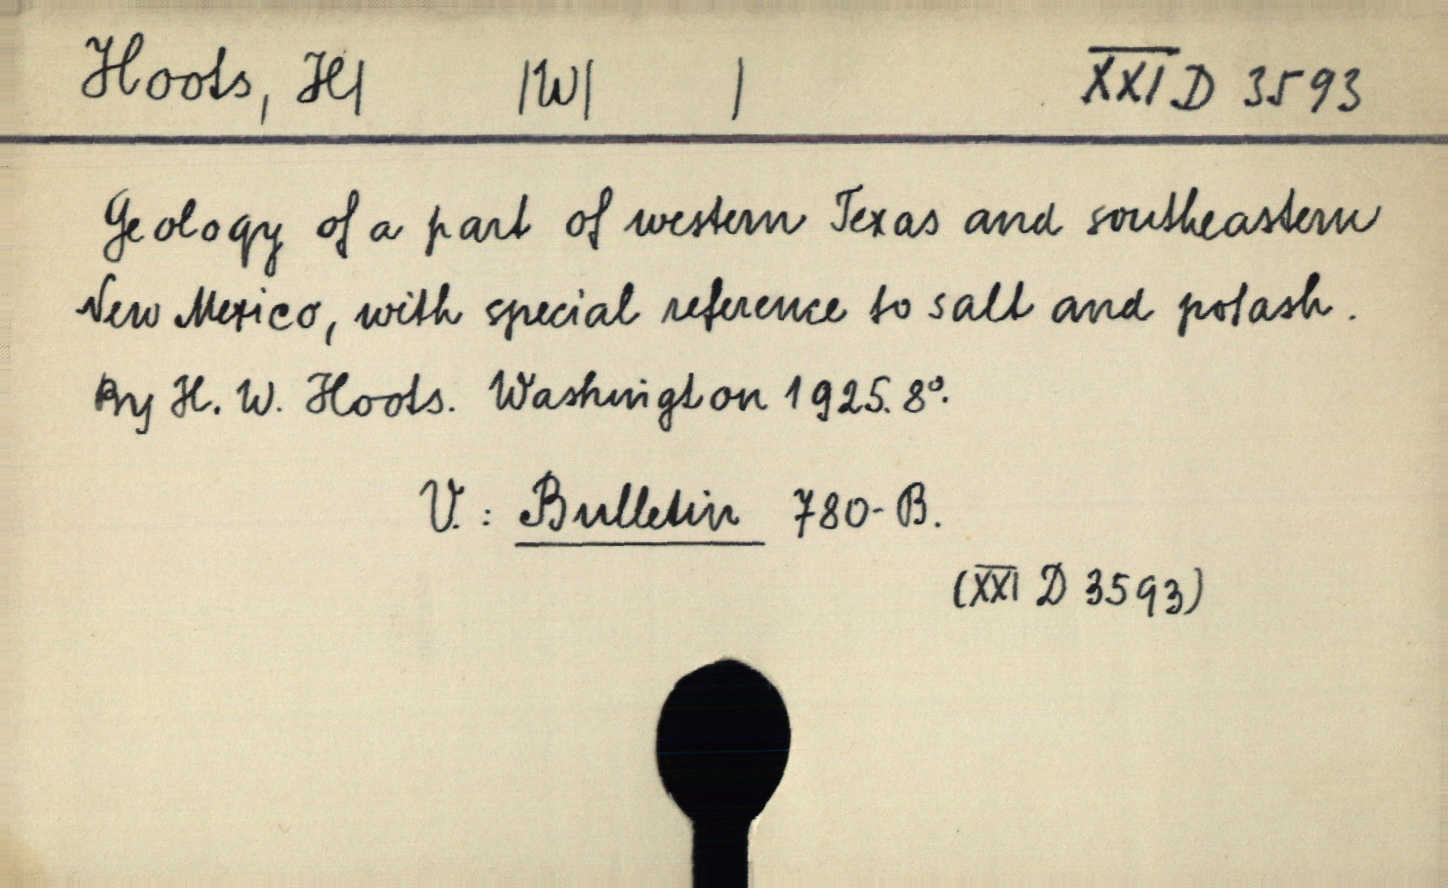 Hoots, H| |W| | XXI D 3593
Geology of a part of western Texas and southeastern
New Mexico, with special reference to salt and potash.
By H. W. Hoots. Washington 1925. 8°.
V. : Bulletin 780-B.
(XXI D 3593)